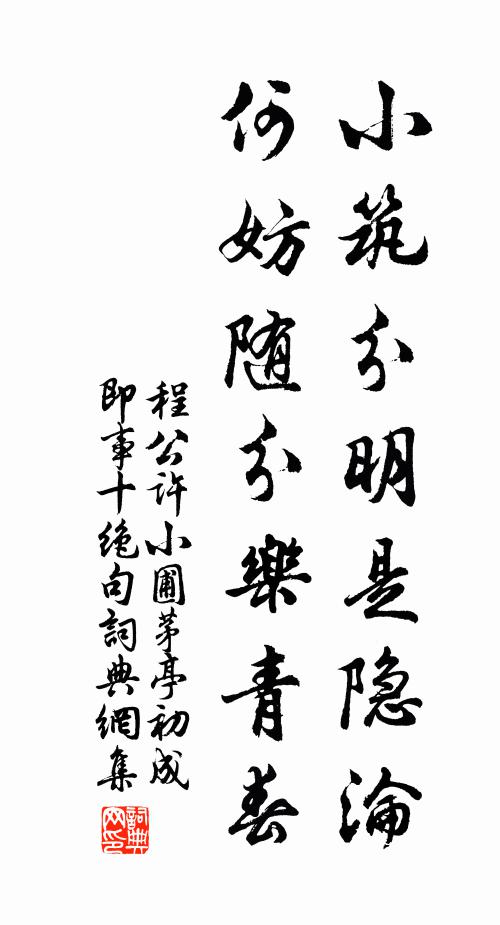 小筑分明是隐淪
何妨随分樂青春
程公許小圃茅亭初成
即事十絶句詞典網集
詞典
网印